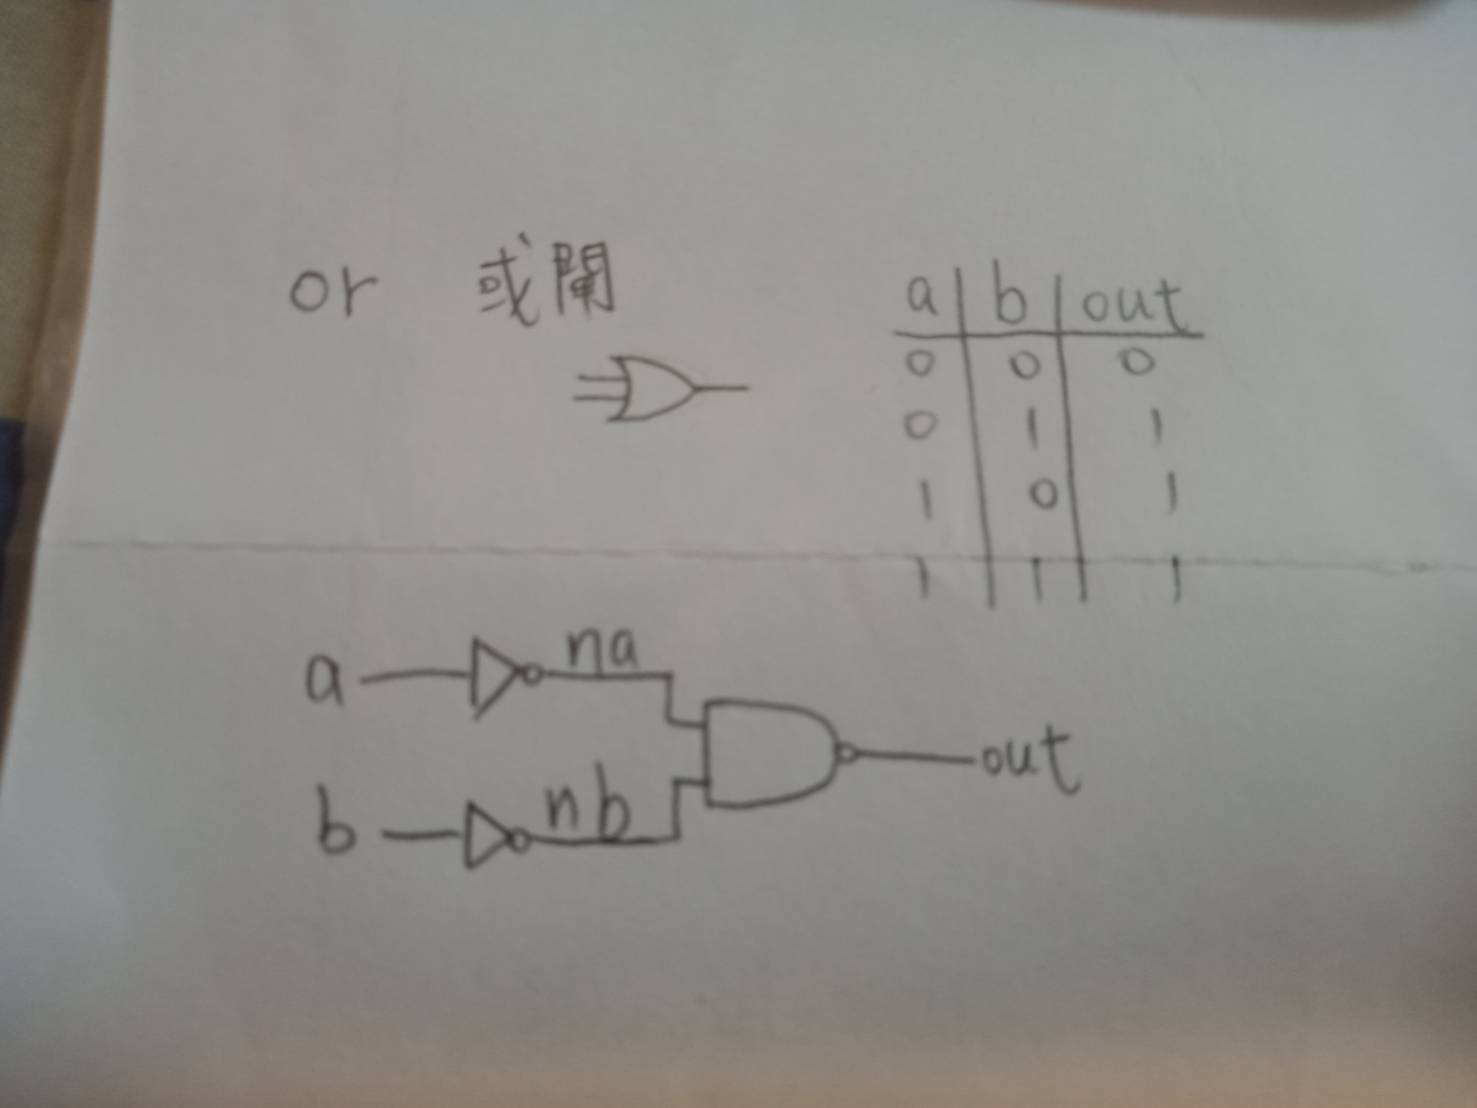 or 或閘
a b out
0 0 0
0 1 1
1 0 1
1 1 1
a na
b nb
out